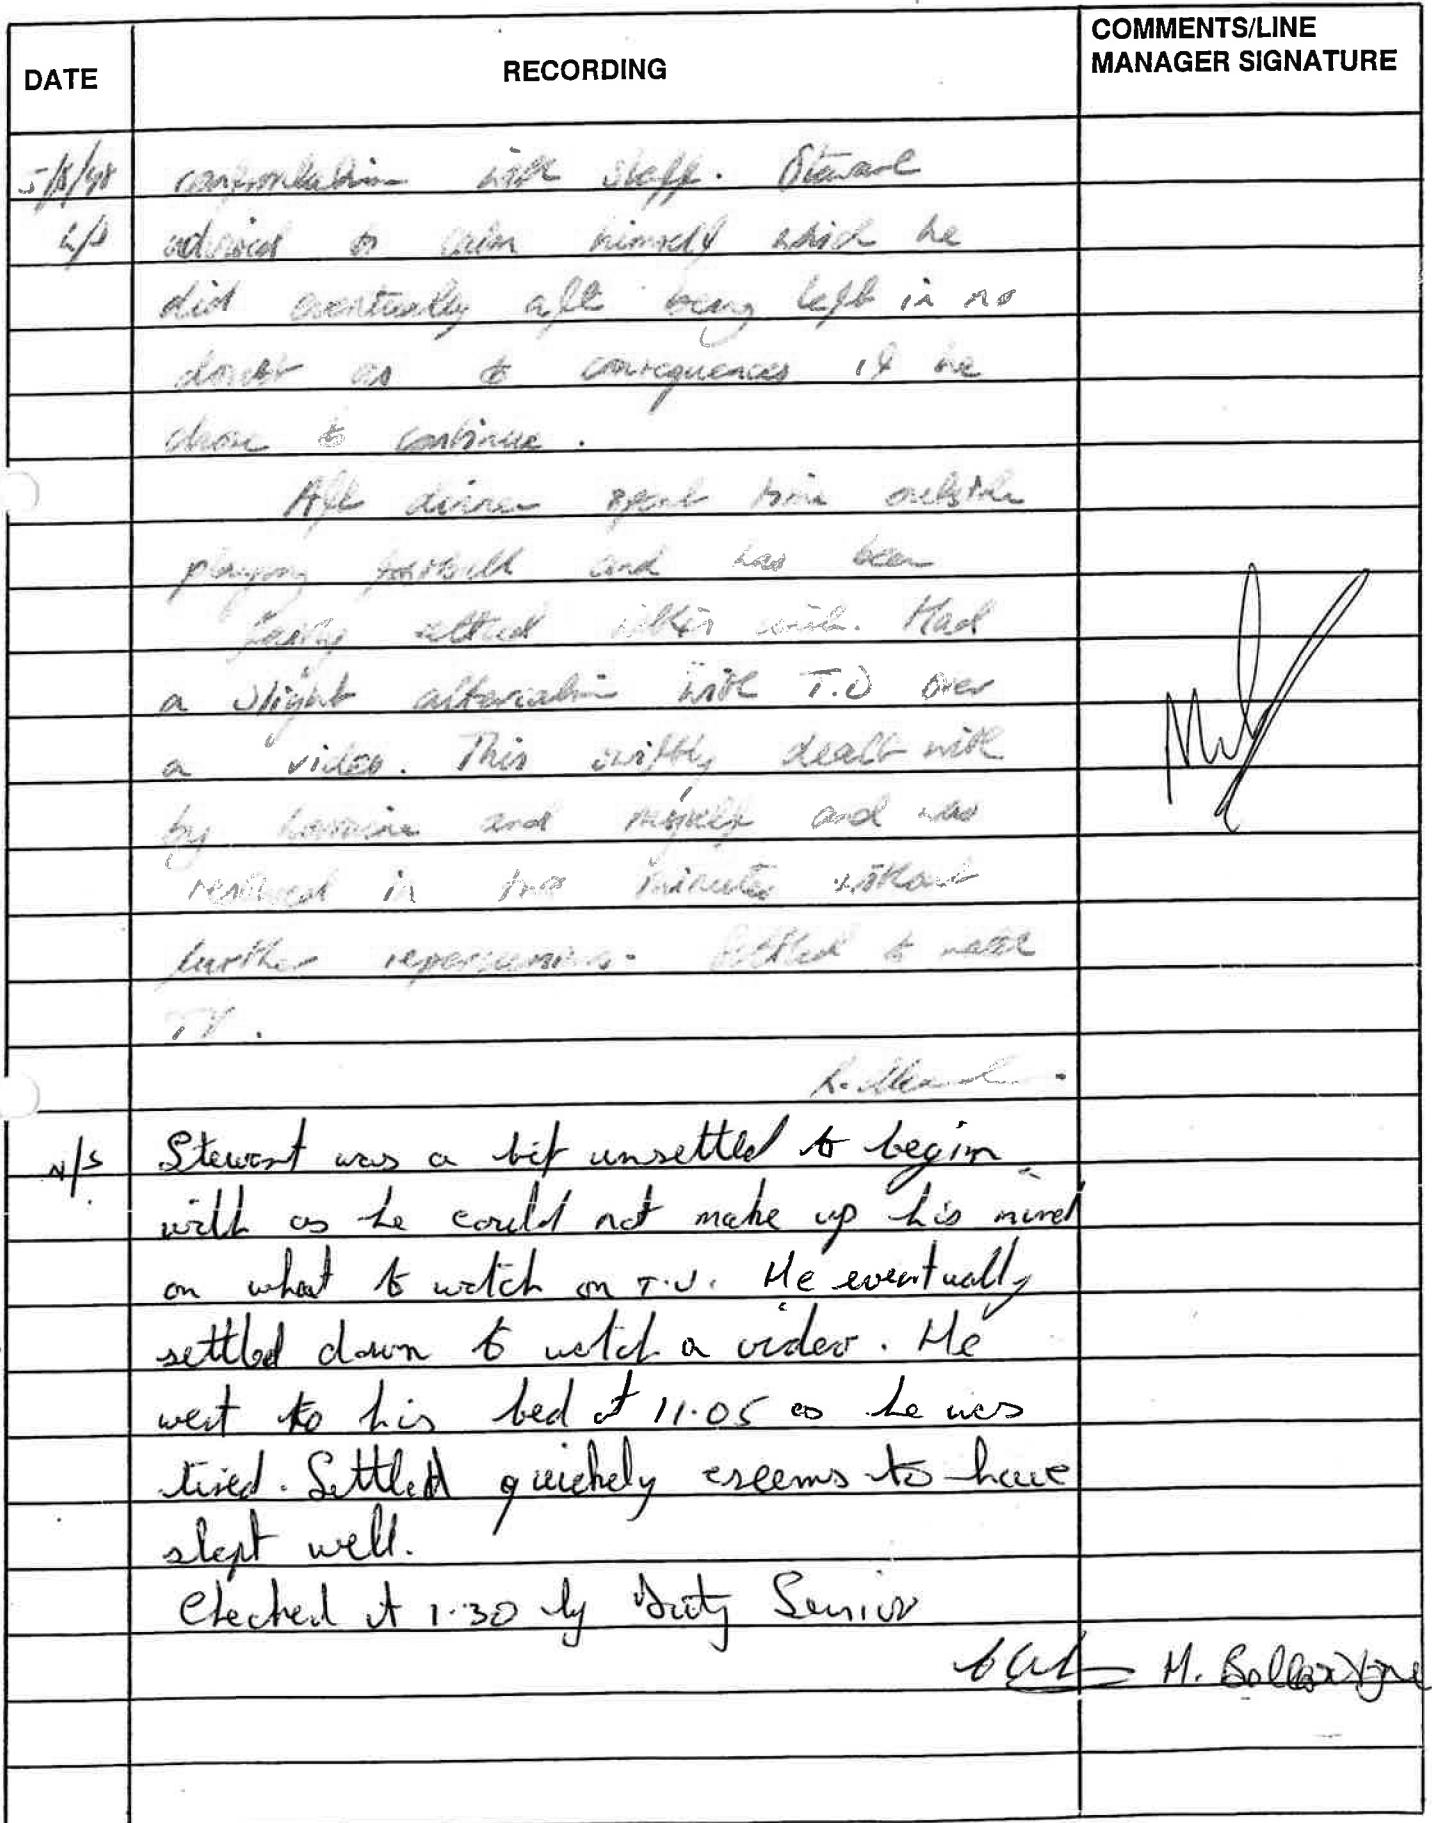 DATE
RECORDING
COMMENTS/LINE
MANAGER SIGNATURE
5/8/98 confrontation with staff. Stewart
L/S advised to calm himself which he
did eventually aft being left in no
doubt as to consequences if he
chose to continue.
Aft dinner spent time outside
playing football and has been
fairly settled within unit. Had
a slight altercation with T.D over
a video. This swiftly dealt with
by Lorraine and myself and was
resolved in two minutes without
further repercussions. Settled to watch
TV.
N/S Stewart was a bit unsettled to begin
with as he could not make up his mind
on what to watch on T.V. He eventually
settled down to watch a video. He
went to his bed at 11.05 as he was
tired. Settled quickely & seems to have
slept well.
Checked at 1.30 by Duty Senior
M. Ballantyne